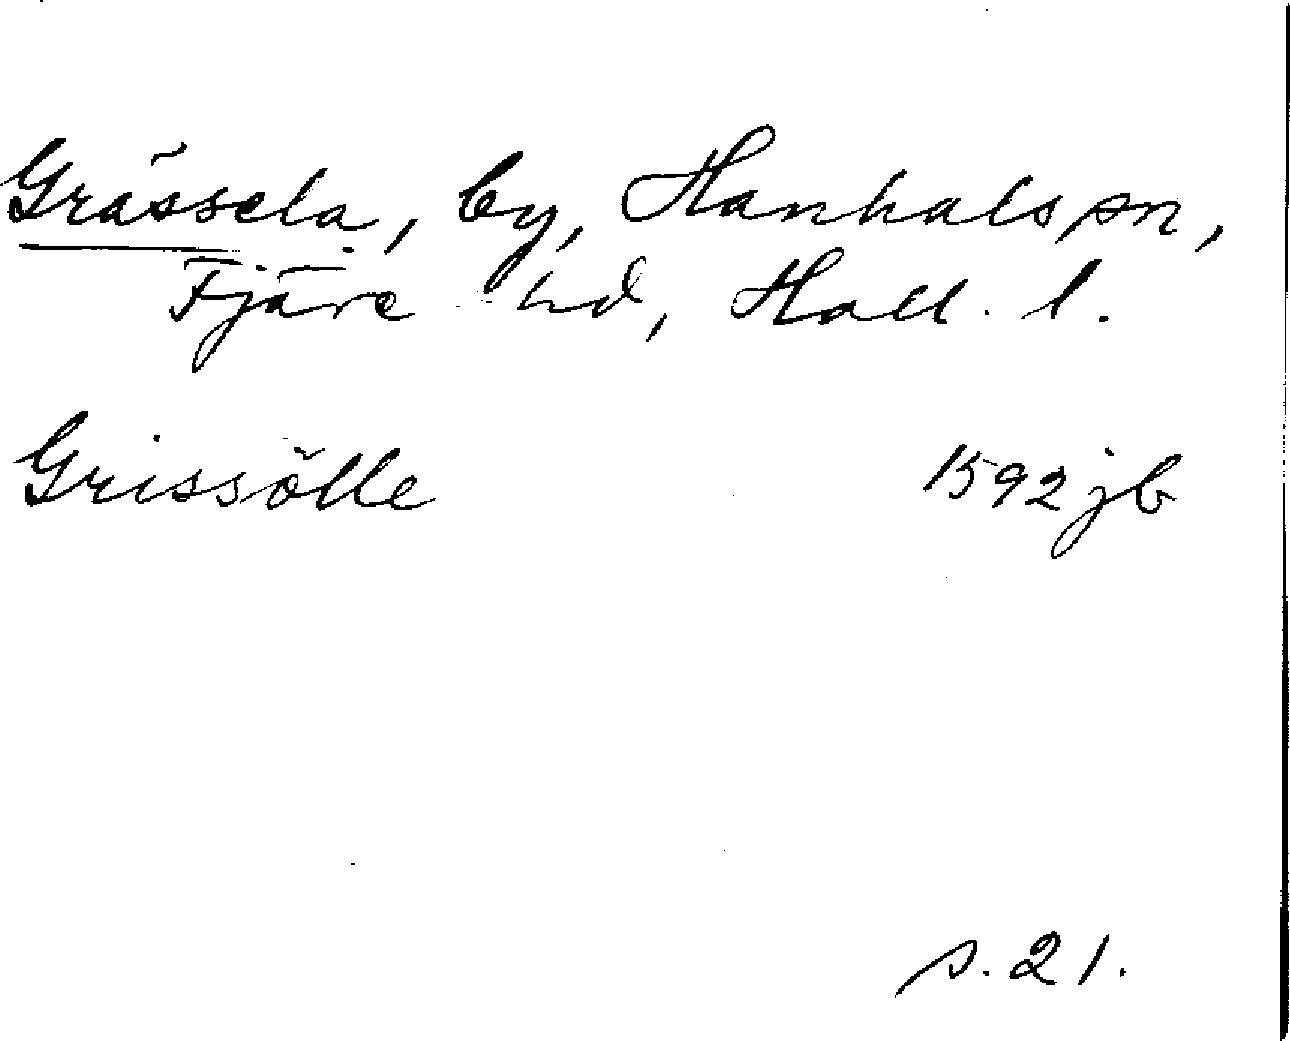 Grässela, by, Hanhals sn,
Fjäre hd, Hall. l.
Grissölle 1592 jb
s. 21.